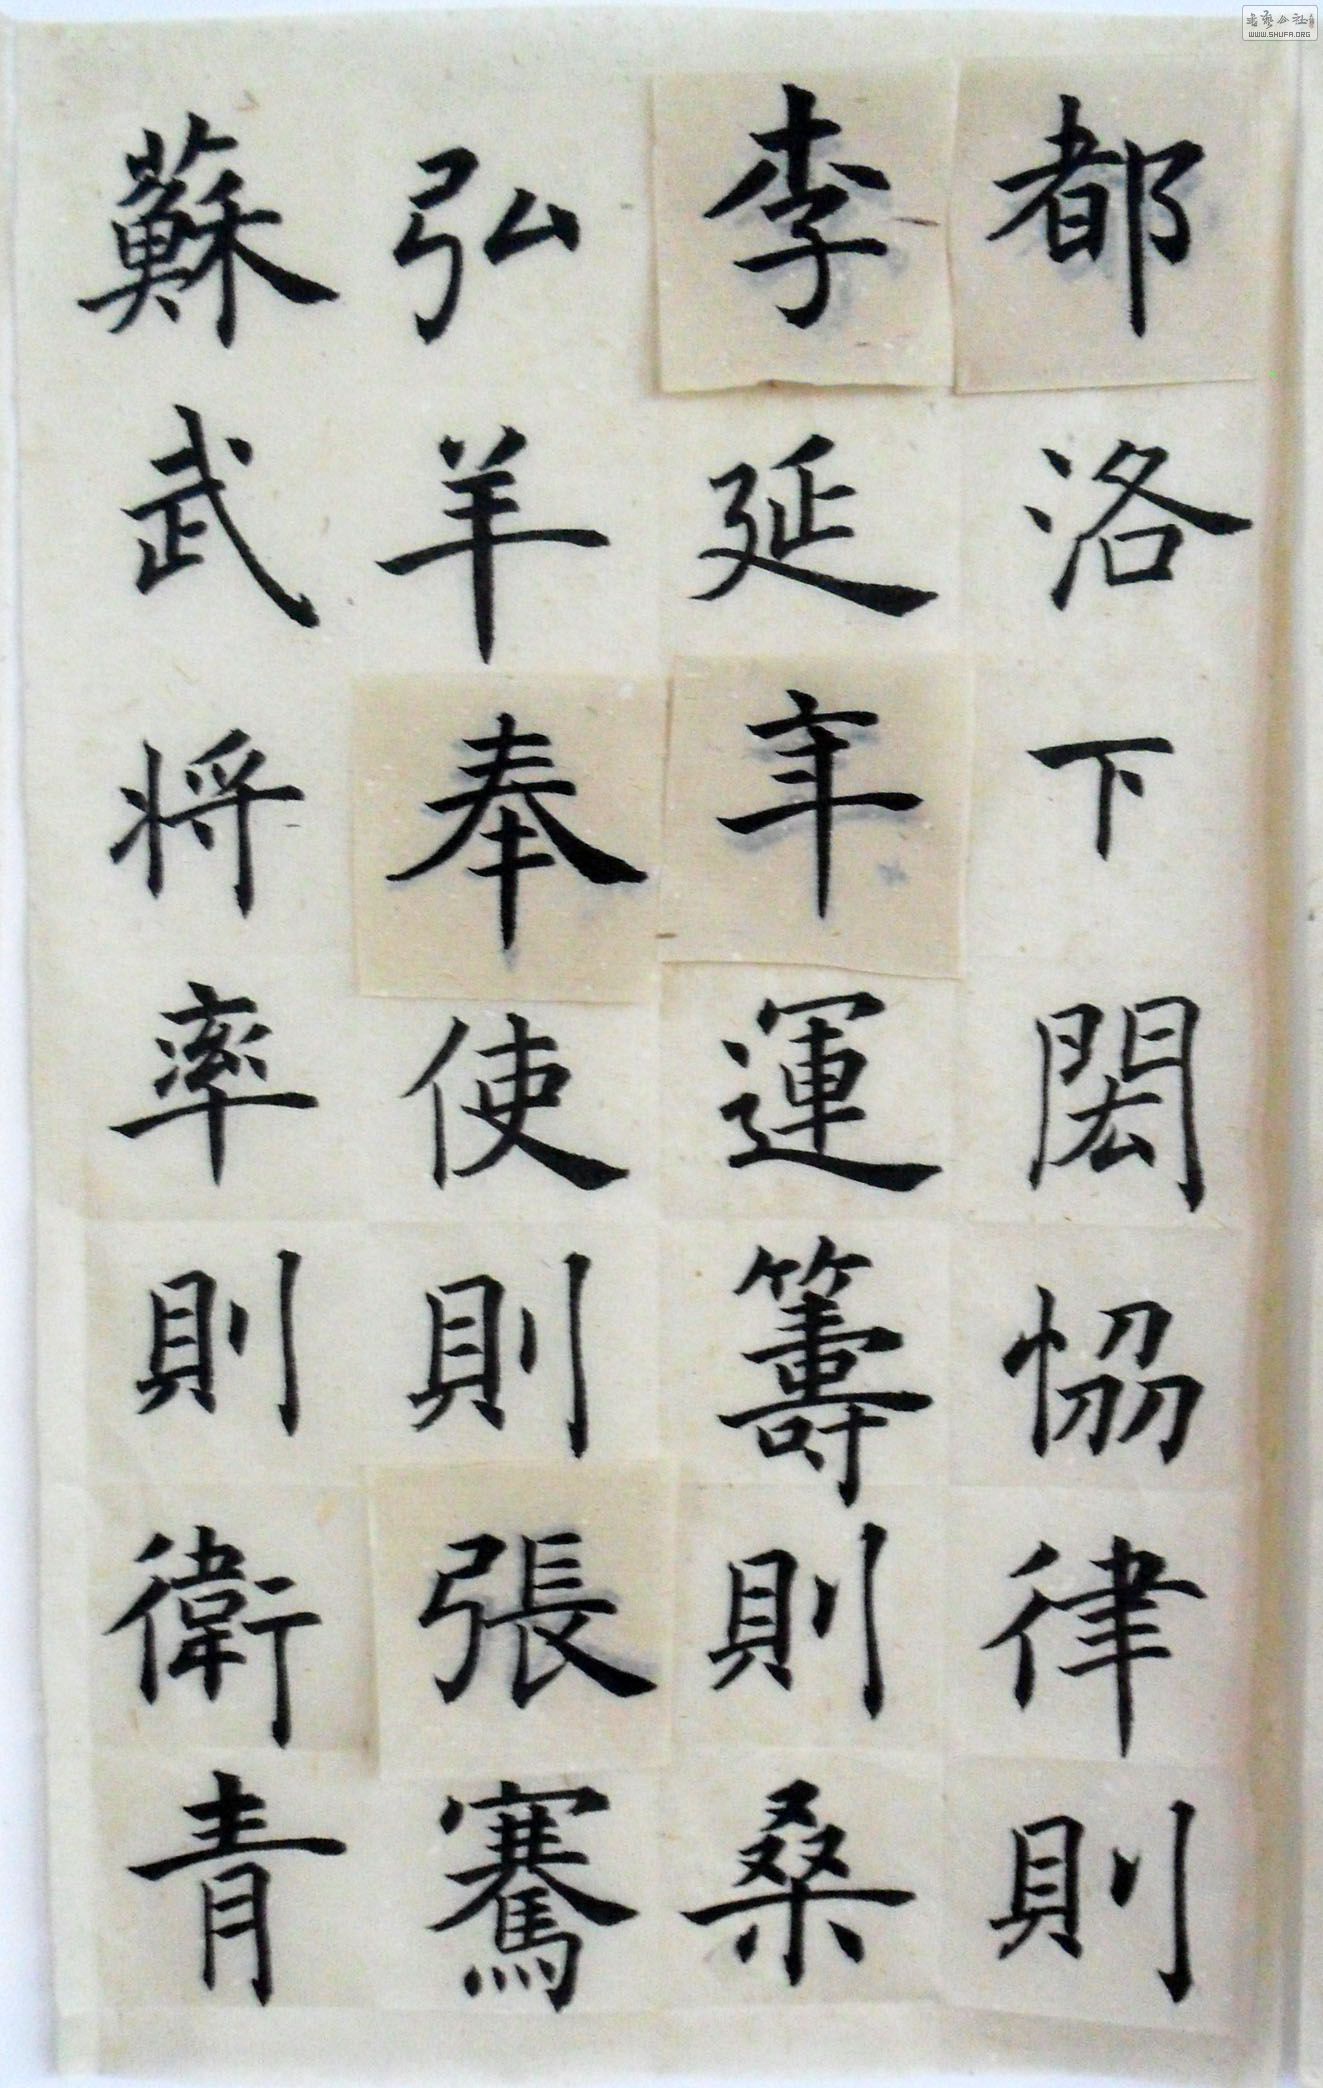 都洛下閎恊律則
李延年運籌則桑
弘羊奉使則張騫
蘇武將率則衛青
书艺公社
WWW.SHUFA.ORG